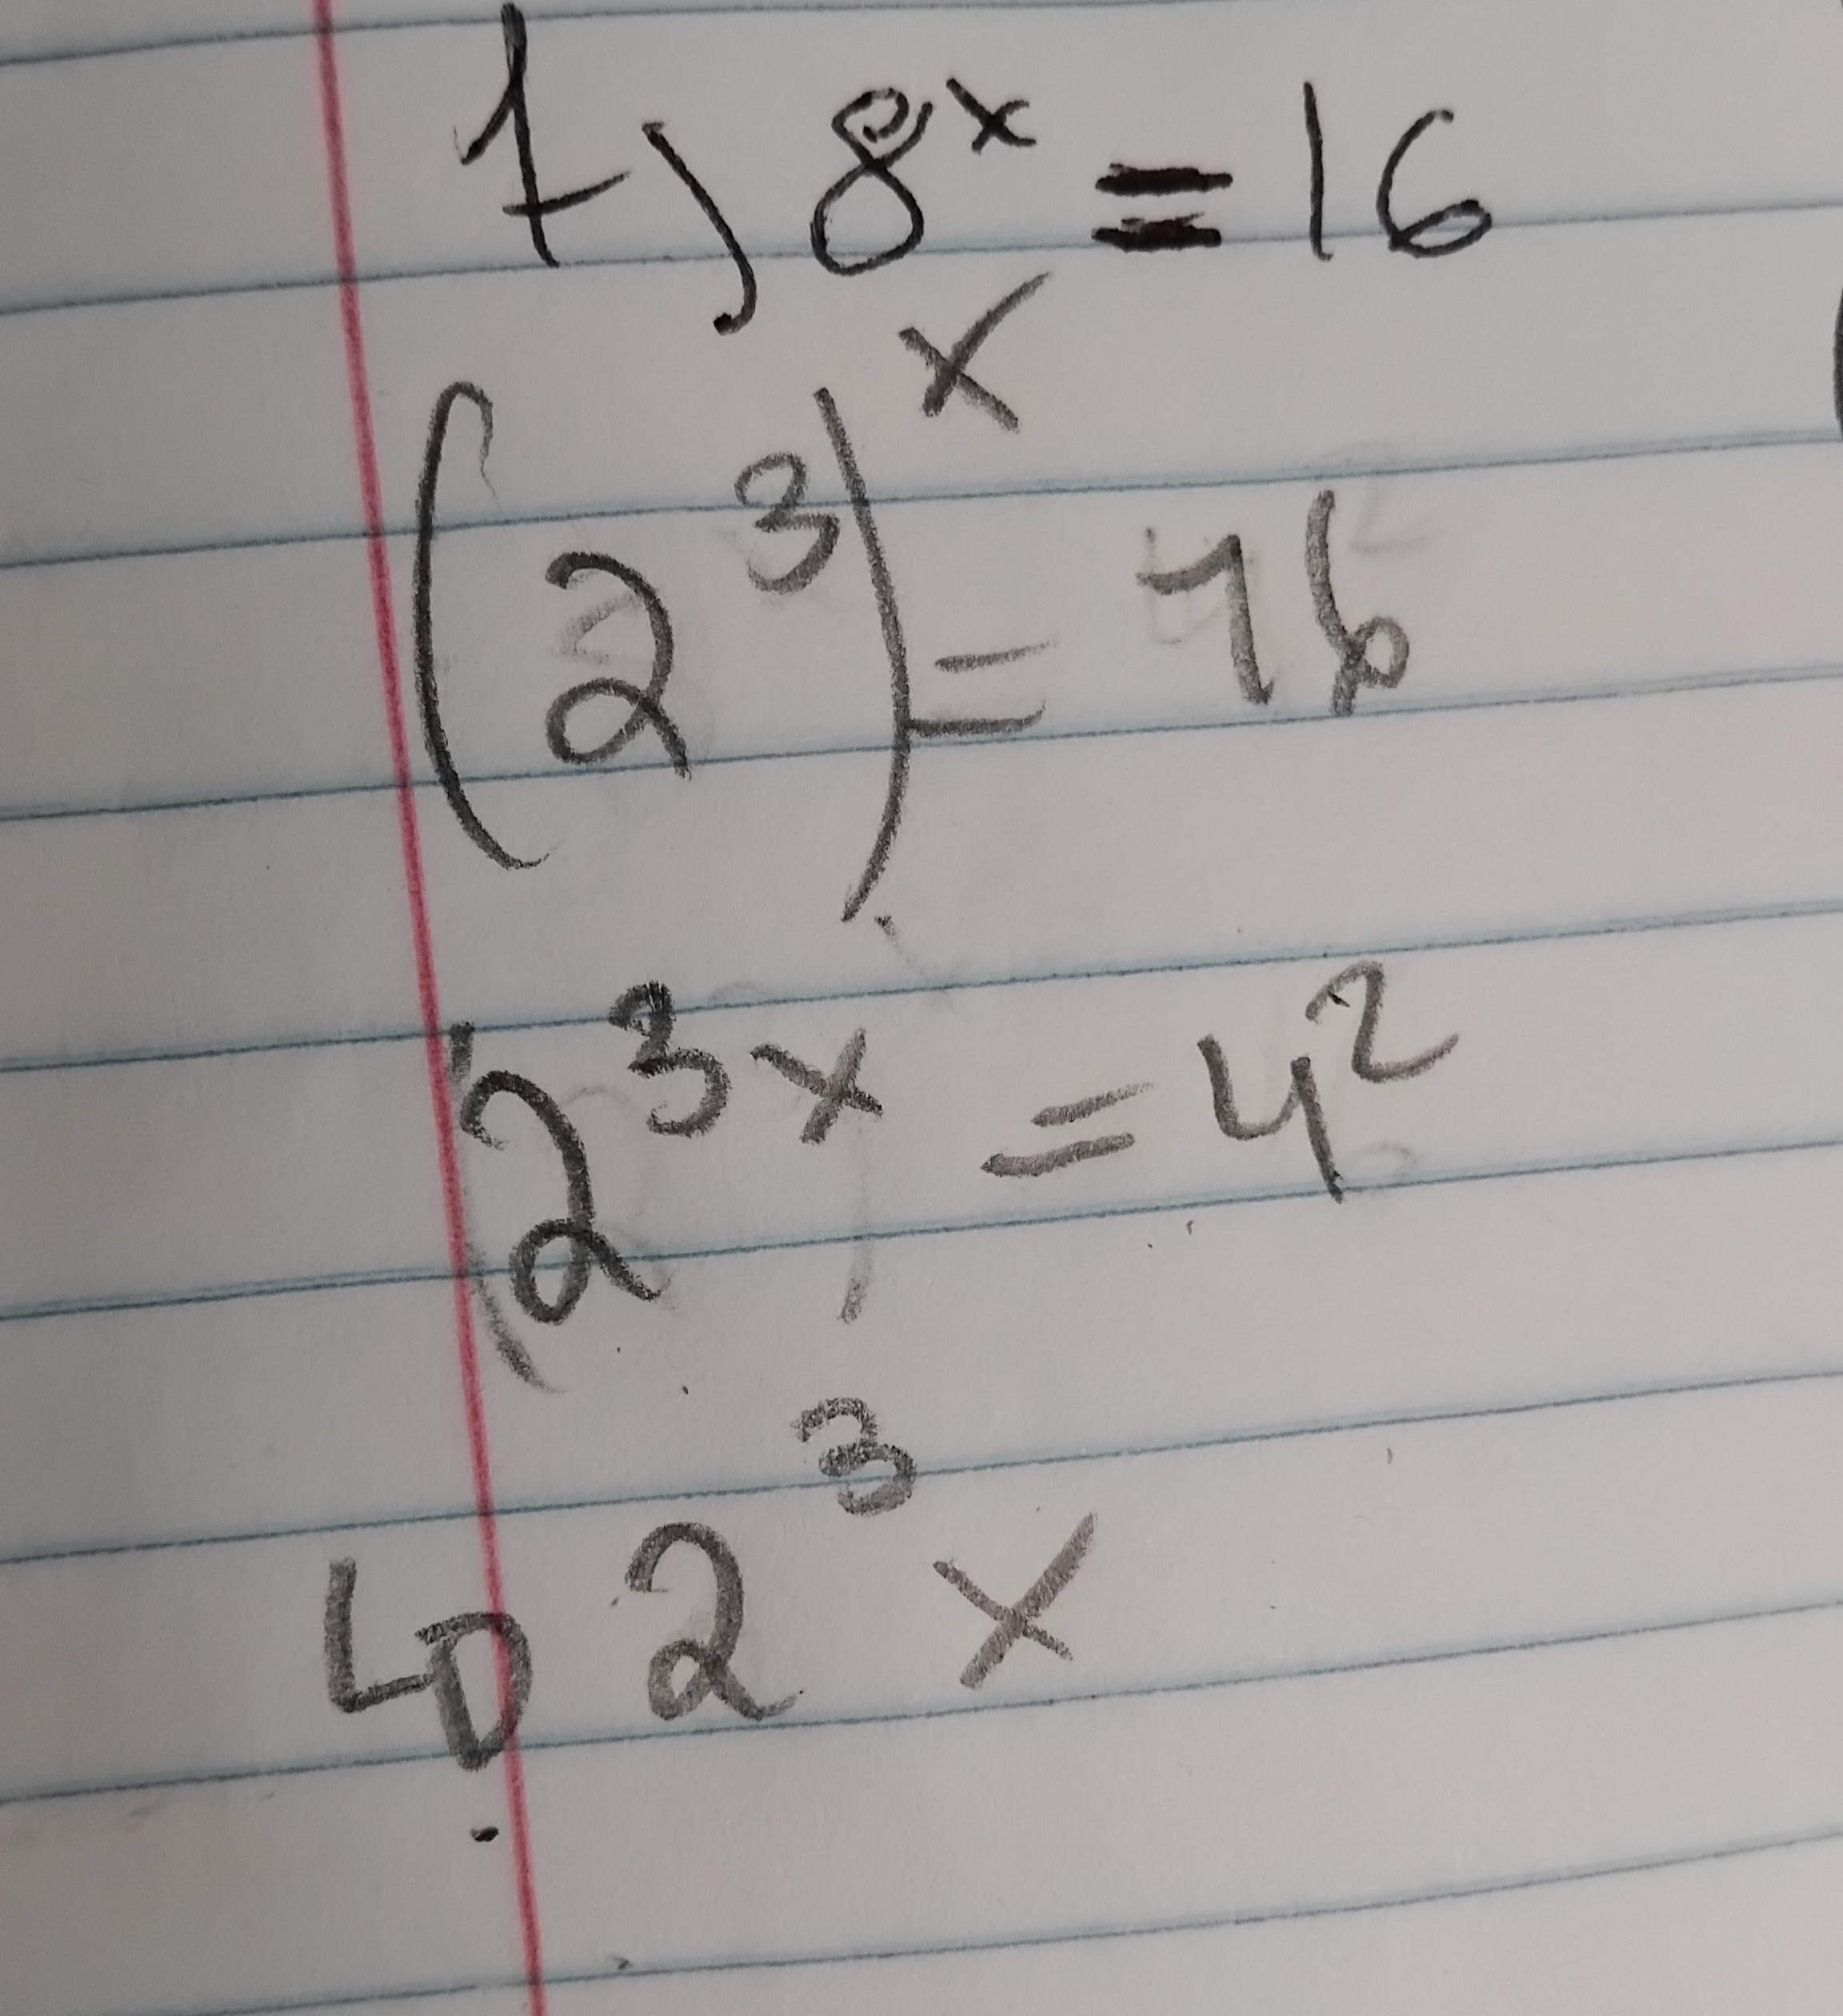 1) 8ˣ = 16
(2³)ˣ = 16
2³ˣ = 4²
↳ 2³ x